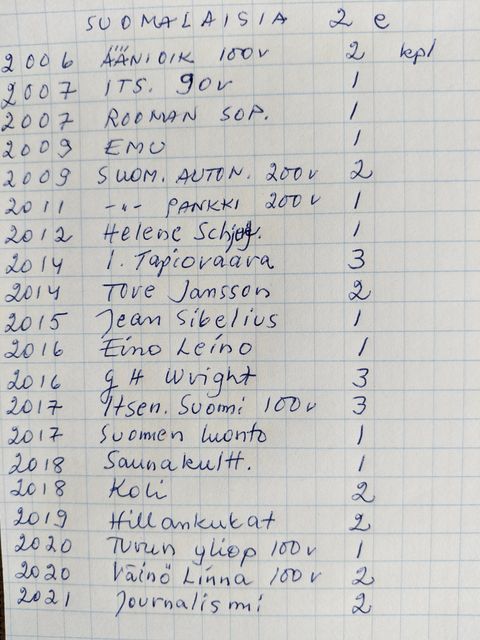 SUOMALAISIA 2 e
2006 ÄÄNIOIK 100v 2 kpl
2007 ITS. 90v 1
2007 ROOMAN SOP. 1
2009 EMU 1
2009 SUOM. AUTON. 200v 2
2011 -"- PANKKI 200v 1
2012 Helene Schjef. 1
2014 I. Tapiovaara 3
2014 Tove Jansson 2
2015 Jean Sibelius 1
2016 Eino Leino 1
2016 G H Wright 3
2017 Itsen. Suomi 100v 3
2017 Suomen luonto 1
2018 Saunakultt. 1
2018 Koli 2
2019 Hillankukat 2
2020 Turun yliop 100v 1
2020 Väinö Linna 100v 2
2021 Journalismi 2